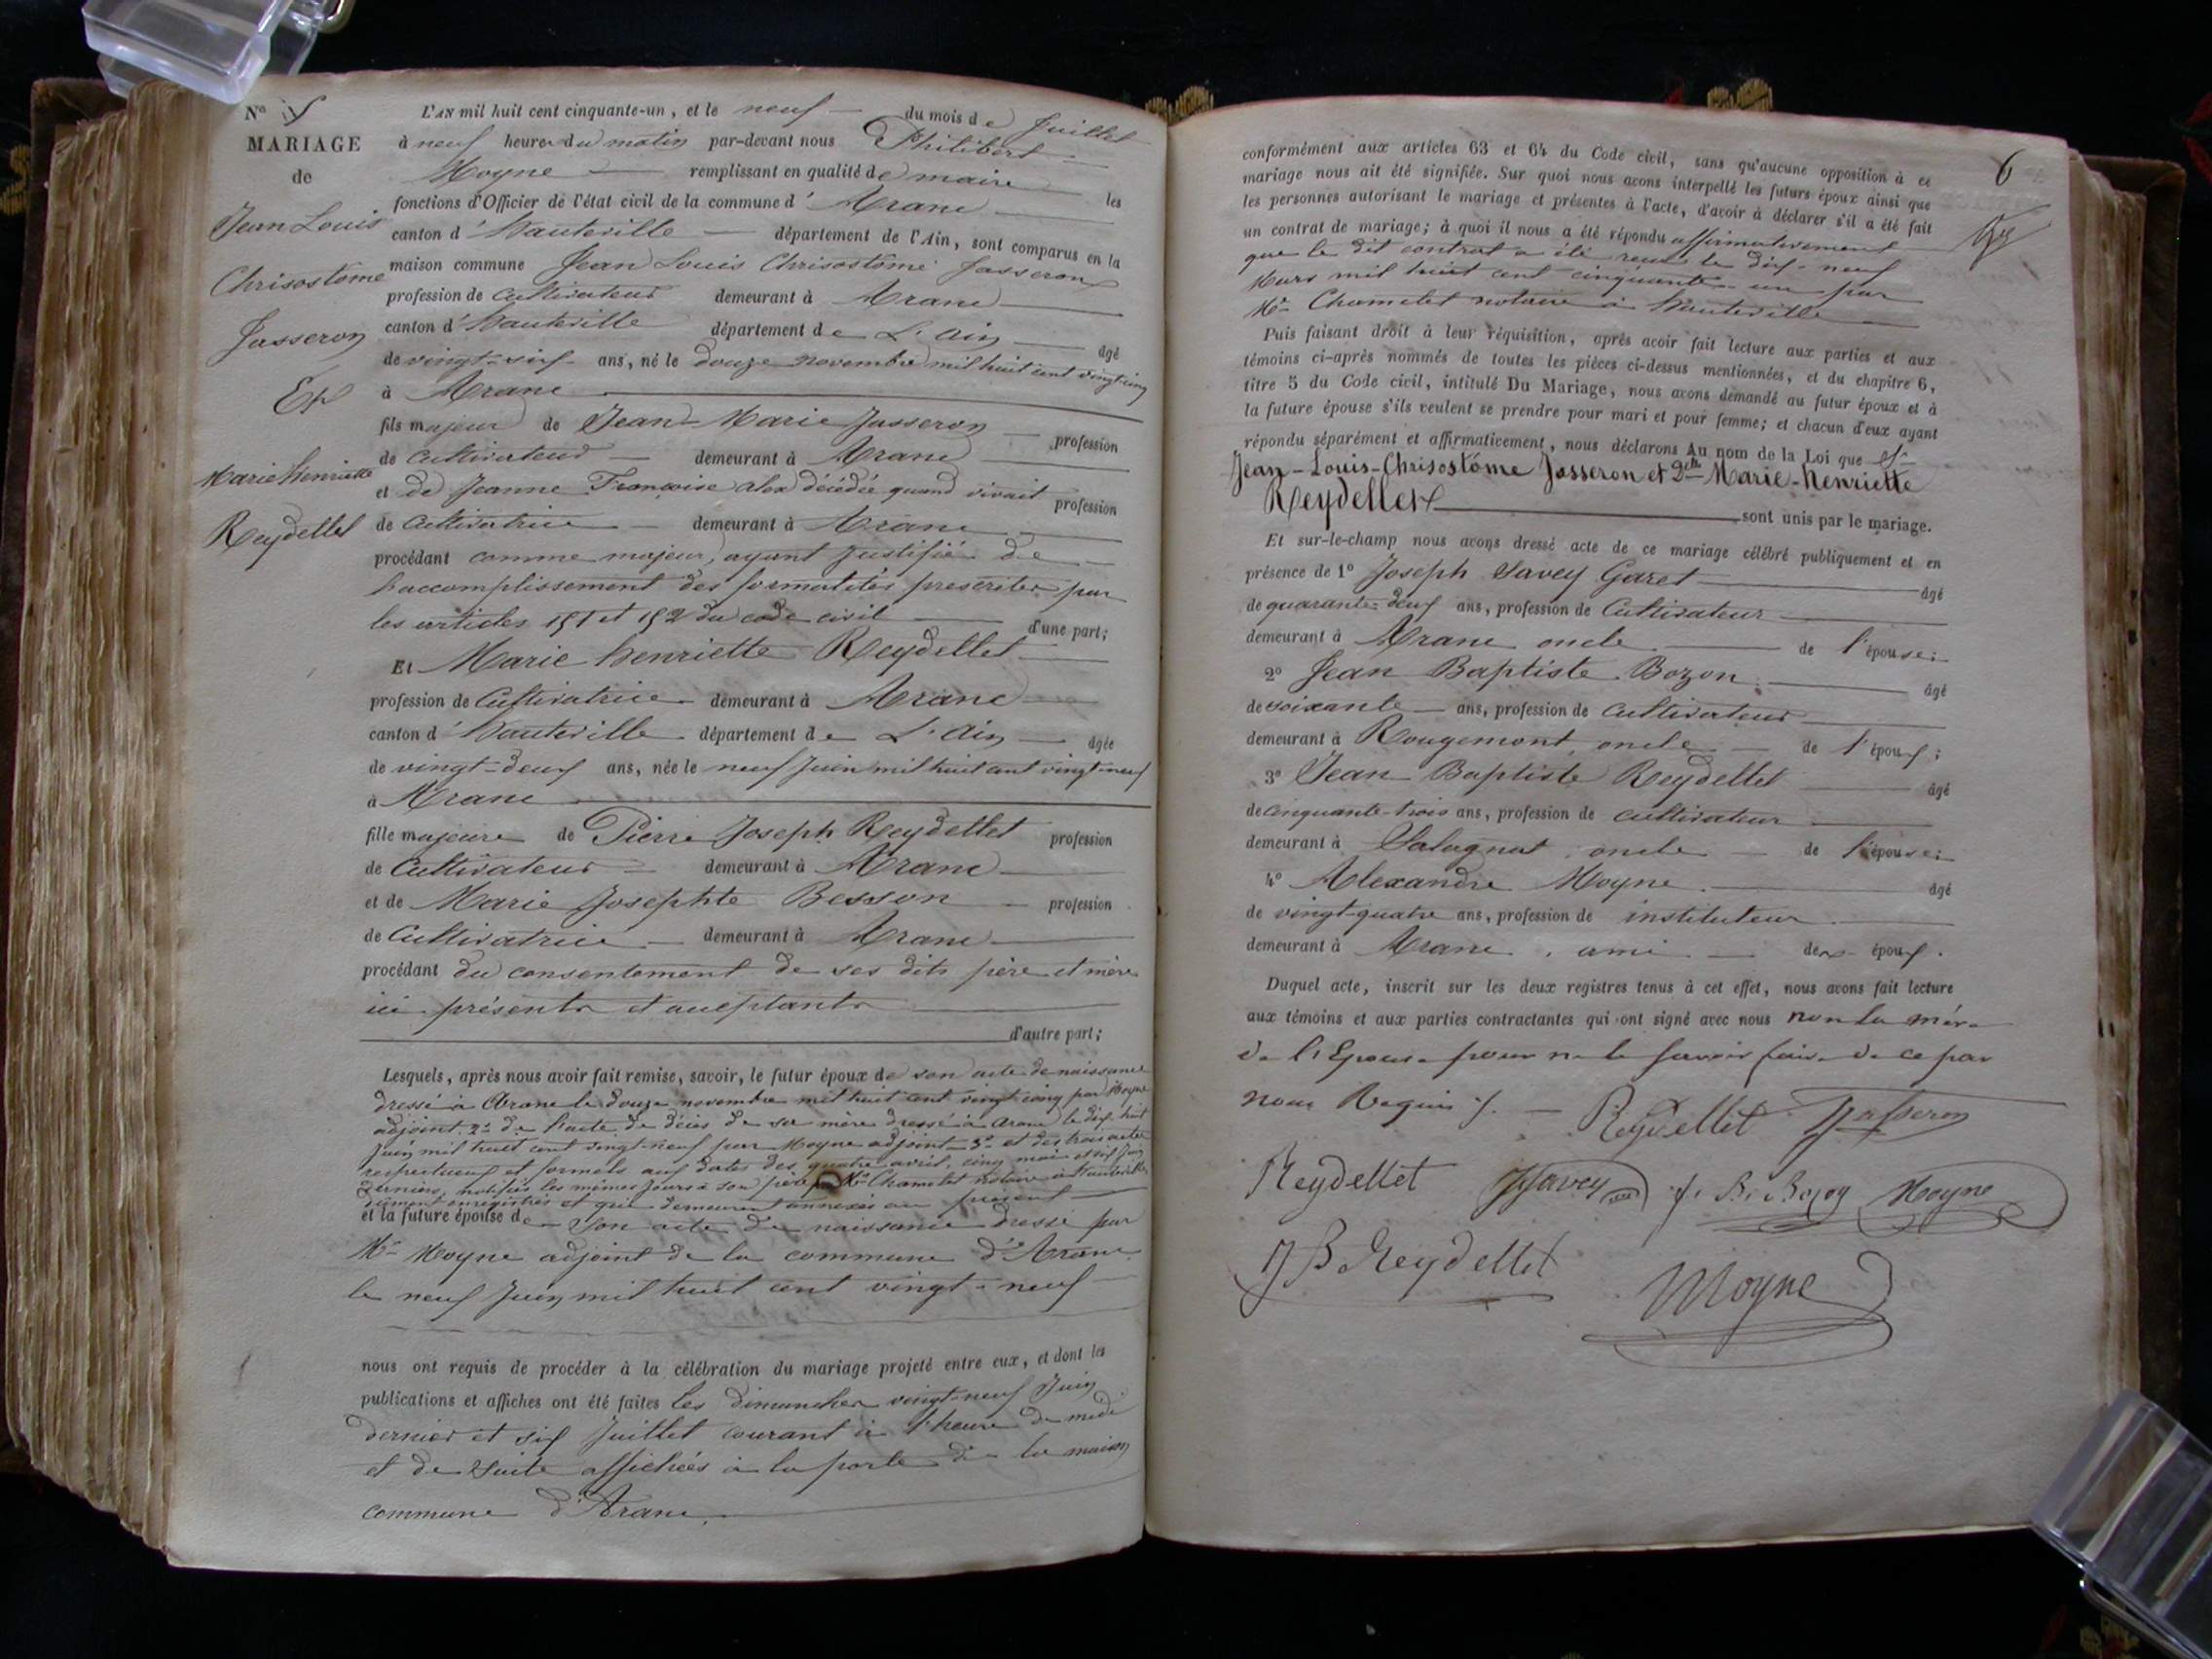 N.º 5
MARIAGE
de
Jean Louis
Chrisostôme
Josseron
Et
Marie henriette
Reydellet
L'AN mil huit cent cinquante-un, et le neuf du mois de Juillet
à neuf heures du matin par-devant nous Philibert
Moyne remplissant en qualité de maire les
fonctions d'Officier de l'état civil de la commune d'Aranc
canton d'hauteville département de l'Ain, sont comparus en la
maison commune Jean Louis Chrisostôme Josseron
profession de Cultivateur demeurant à Aranc
canton d'hauteville département de L'Ain âgé
de vingt-six ans, né le douze novembre mil huit cent vingt cinq
à Aranc
fils majeur de Jean-Marie Josseron profession
de Cultivateur demeurant à Aranc
et de Jeanne Françoise alex décédée quand vivait profession
de Cultivatrice demeurant à Aranc
procédant comme majeur, ayant justifié de
l'accomplissement des formalités prescrites par
les articles 151 et 152 du code civil d'une part;
Et Marie henriette Reydellet
profession de Cultivatrice demeurant à Aranc
canton d'hauteville département de L'Ain âgée
de vingt-deux ans, née le neuf Juin mil huit cent vingt-neuf
à Aranc
fille majeure de Pierre Joseph Reydellet profession
de Cultivateur demeurant à Aranc
et de Marie Josephte Besson profession
de Cultivatrice demeurant à Aranc
procédant du consentement de ses dits père et mère
ici présents et acceptants
d'autre part;
Lesquels, après nous avoir fait remise, savoir, le futur époux de son acte de naissance
dressé à Aranc le douze novembre mil huit cent vingt cinq par Moyne
adjoint. 2º de l'acte de décès de sa mère dressé à Aranc le dix huit
Juin mil huit cent vingt-neuf par Moyne adjoint 3º et des trois actes
respectueux et formels aux dates des quatre avril, cinq mai et six Juin
derniers, notifiés les mêmes jours à son père Me Chamelet notaire à hauteville
dûment enregistrés et qui demeurent annexés au présent
et la future épouse de son acte de naissance dressé par
Mr Moyne adjoint de la commune d'Aranc
le neuf Juin mil huit cent vingt-neuf
nous ont requis de procéder à la célébration du mariage projeté entre eux, et dont les
publications et affiches ont été faites les dimanches vingt-neuf Juin
dernier et six Juillet courant à l'heure de midi
et de suite affichées à la porte de la maison
commune d'Aranc.
6
conformément aux articles 63 et 64 du Code civil, sans qu'aucune opposition à ce
mariage nous ait été signifiée. Sur quoi nous avons interpellé les futurs époux ainsi que
les personnes autorisant le mariage et présentes à l'acte, d'avoir à déclarer s'il a été fait
un contrat de mariage; à quoi il nous a été répondu affirmativement
que le dit contrat a été reçu le dix-neuf
Mars mil huit cent cinquante-un par
Me Chamelet notaire à hauteville
Puis faisant droit à leur réquisition, après avoir fait lecture aux parties et aux
témoins ci-après nommés de toutes les pièces ci-dessus mentionnées, et du chapitre 6,
titre 5 du Code civil, intitulé Du Mariage, nous avons demandé au futur époux et à
la future épouse s'ils veulent se prendre pour mari et pour femme; et chacun d'eux ayant
répondu séparément et affirmativement, nous déclarons Au nom de la Loi que Sr
Jean-Louis-Chrisostôme Josseron et Delle Marie-henriette
Reydellet sont unis par le mariage.
Et sur-le-champ nous avons dressé acte de ce mariage célébré publiquement et en
présence de 1º Joseph Savey Garet âgé
de quarante-deux ans, profession de Cultivateur
demeurant à Aranc oncle de l'épouse;
2º Jean Baptiste Bozon âgé
de soixante ans, profession de Cultivateur
demeurant à Rougemont, oncle de l'époux;
3º Jean Baptiste Reydellet âgé
de cinquante-trois ans, profession de cultivateur
demeurant à Salagnat, oncle de l'épouse;
4º Alexandre Moyne âgé
de vingt-quatre ans, profession de instituteur
demeurant à Aranc, ami des époux.
Duquel acte, inscrit sur les deux registres tenus à cet effet, nous avons fait lecture
aux témoins et aux parties contractantes qui ont signé avec nous non la mère
de l'Epouse pour ne le savoir faire de ce par
nous Requis /.
Reydellet Josseron
Reydellet JSavey J. B. Bozon Moyne
J B Reydellet
Moyne